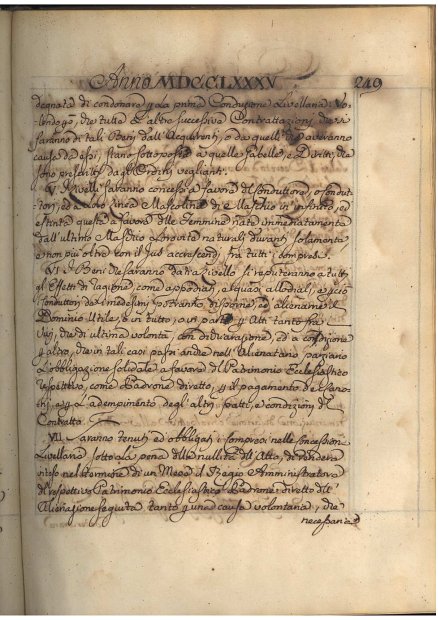 Anno MDCCLXXXV 249
degnata di condonare p La prima Conduzione Livellaria; Vo-
lendo po, che tutte L'altre successive Contrattazioni, che si
faranno di tali Beni dall'Acquirenti, o da quelli che averanno
causa da Essi, siano sottoposte a quelle Gabelle, e Diritti, che
sono prescritti dagl'Ordini veglianti.
V. I Livelli saranno concessi a favore del Conduttore, o Condut-
tori, ed a Loro Linea Mascolina di Maschio in Infinito, ed
estinta questa a favore delle Femmine nate immediatamente
dall'ultimo Maschio Loro vite naturali duranti solamente
e non più oltre con il Jus accrescendi fra tutti i compresi.
VI. I Beni che saranno dati a Livello si reputeranno a tutti
gl'Effetti di ragione, come appodiati, e quasi allodiali, e perciò
i Conduttori dei medesimi potranno disporne, ed alienarne il
Dominio Utile, o in tutto, o in parte p Atti tanto fra i
vivi, che di ultima volontà, con dichiarazione, ed a condizione
p altro, che in tali casi passi anche nell'Alienatario
L'obbligazione solidale a favore del Patrimonio Ecclesiastico
respettivo, come Padrone diretto, p il pagamento de Cano-
ni, e p L'adempimento degl'altri patti, e condizioni del
Contratto.
VII. Saranno tenuti ed obbligati sempre nelle Concessioni
Livellarie sotto la pena della nullità dell'Atto, di rendere
inteso nel termine di un Mese il Regio Amministratore
del respettivo Patrimonio Ecclesiastico Padrone diretto dell'
Alienazione seguita tanto p una causa volontaria, che
necessaria